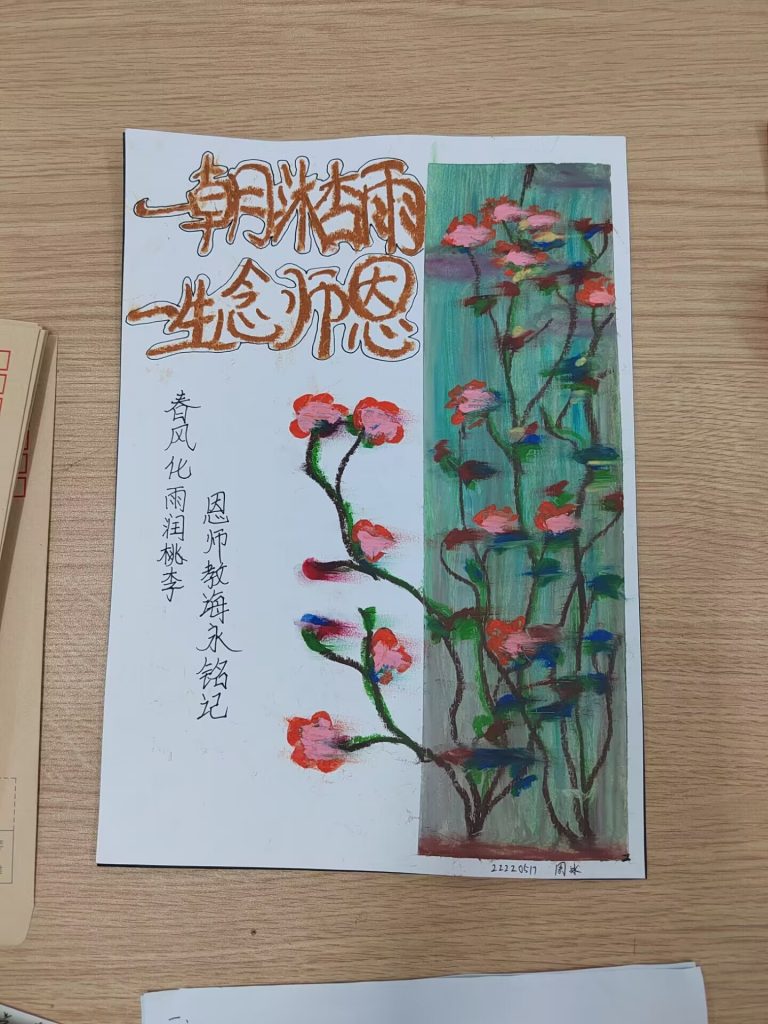 一朝沐杏雨
一生念师恩
春风化雨润桃李
恩师教海永铭记
22220517 周冰
一、